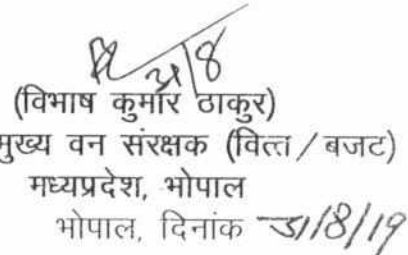 (विभाष कुमार ठाकुर)
मुख्य वन संरक्षक (वित्त/बजट)
मध्यप्रदेश, भोपाल
भोपाल, दिनांक 31/8/19